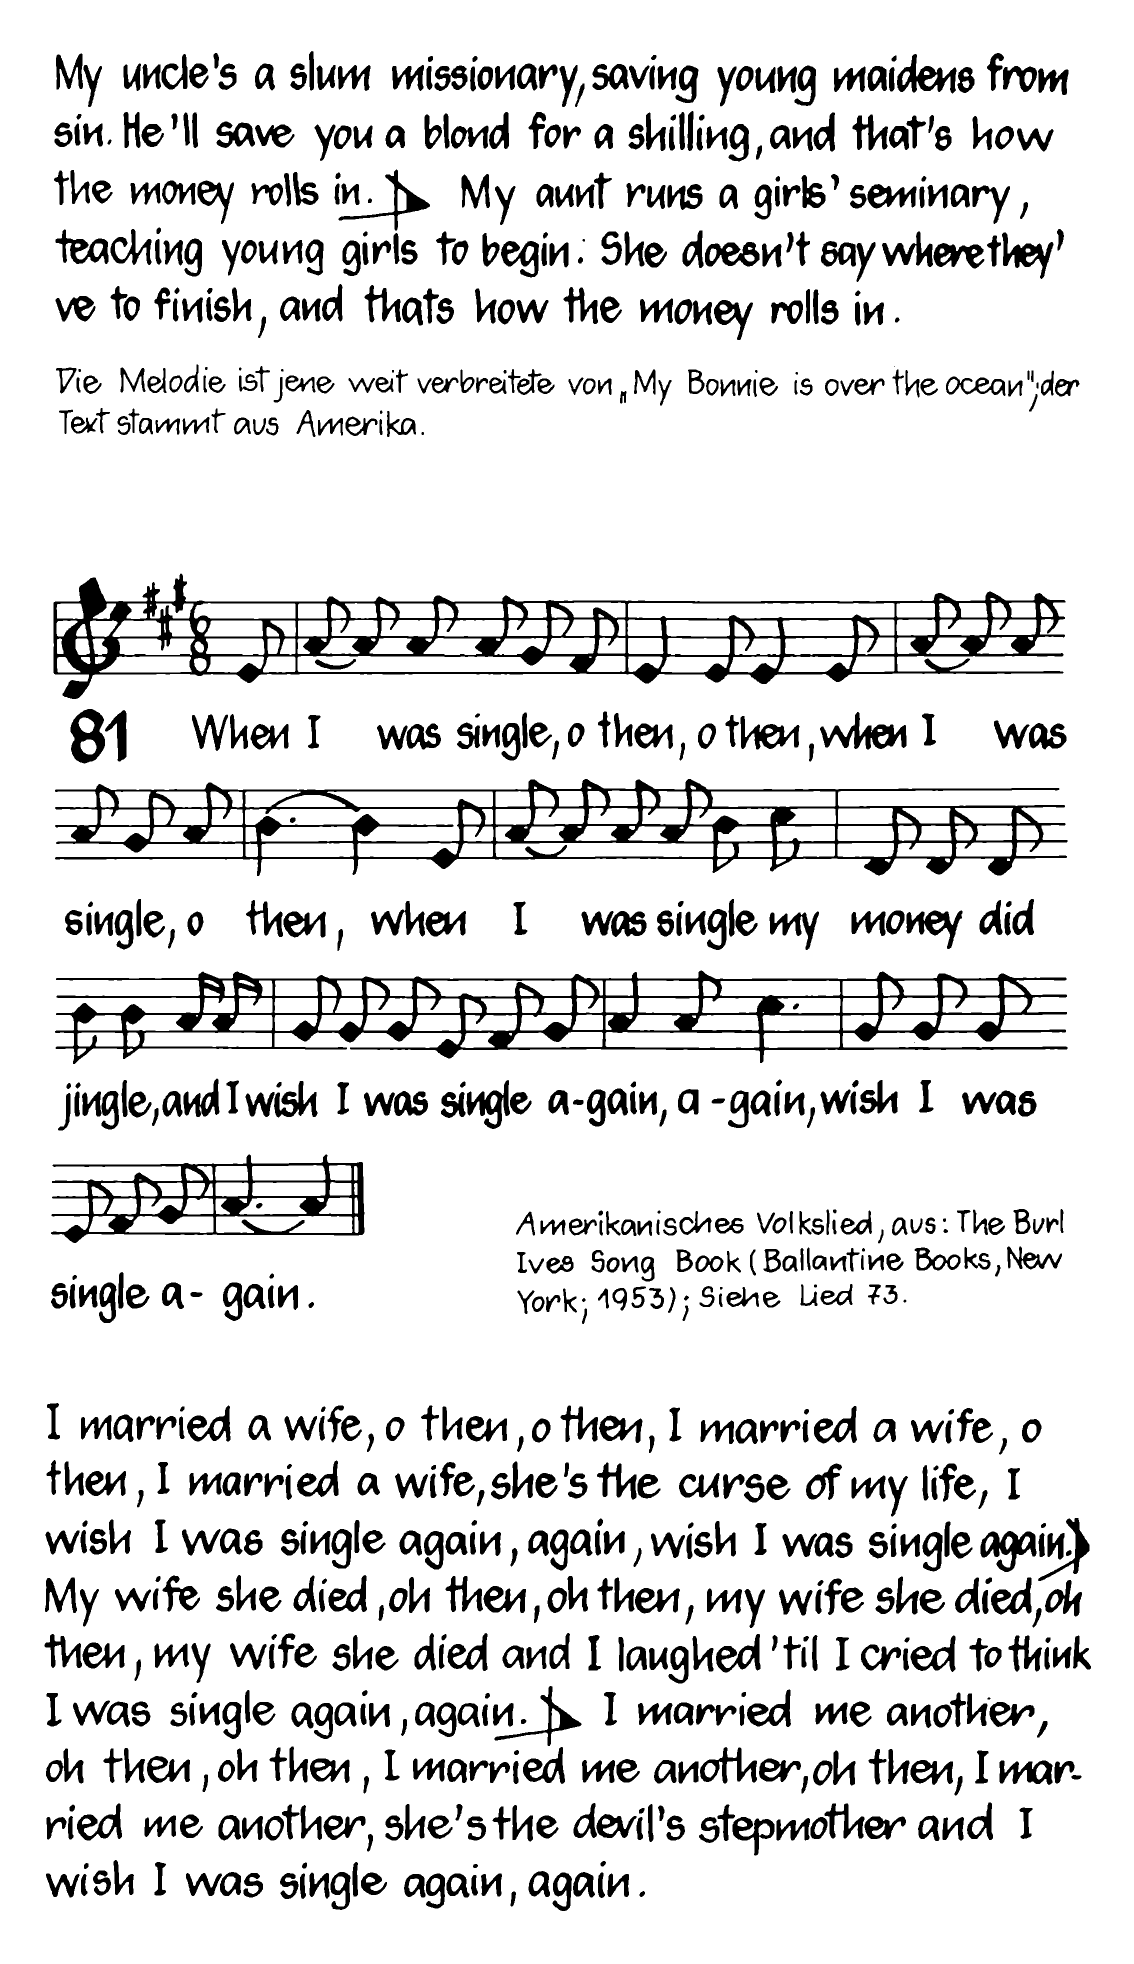 My uncle's a slum missionary, saving young maidens from
sin. He'll save you a blond for a shilling, and that's how
the money rolls in. My aunt runs a girls' seminary,
teaching young girls to begin. She doesn't say where they'
ve to finish, and thats how the money rolls in.
Die Melodie ist jene weit verbreitete von „My Bonnie is over the ocean"; der
Text stammt aus Amerika.
6
8
81 When I was single, o then, o then, when I was
single, o then, when I was single my money did
jingle, and I wish I was single a-gain, a-gain, wish I was
single a-gain.
Amerikanisches Volkslied, aus: The Burl
Ives Song Book (Ballantine Books, New
York; 1953); Siehe Lied 73.
I married a wife, o then, o then, I married a wife, o
then, I married a wife, she's the curse of my life, I
wish I was single again, again, wish I was single again.
My wife she died, oh then, oh then, my wife she died, oh
then, my wife she died and I laughed 'til I cried to think
I was single again, again. I married me another,
oh then, oh then, I married me another, oh then, I mar-
ried me another, she's the devil's stepmother and I
wish I was single again, again.